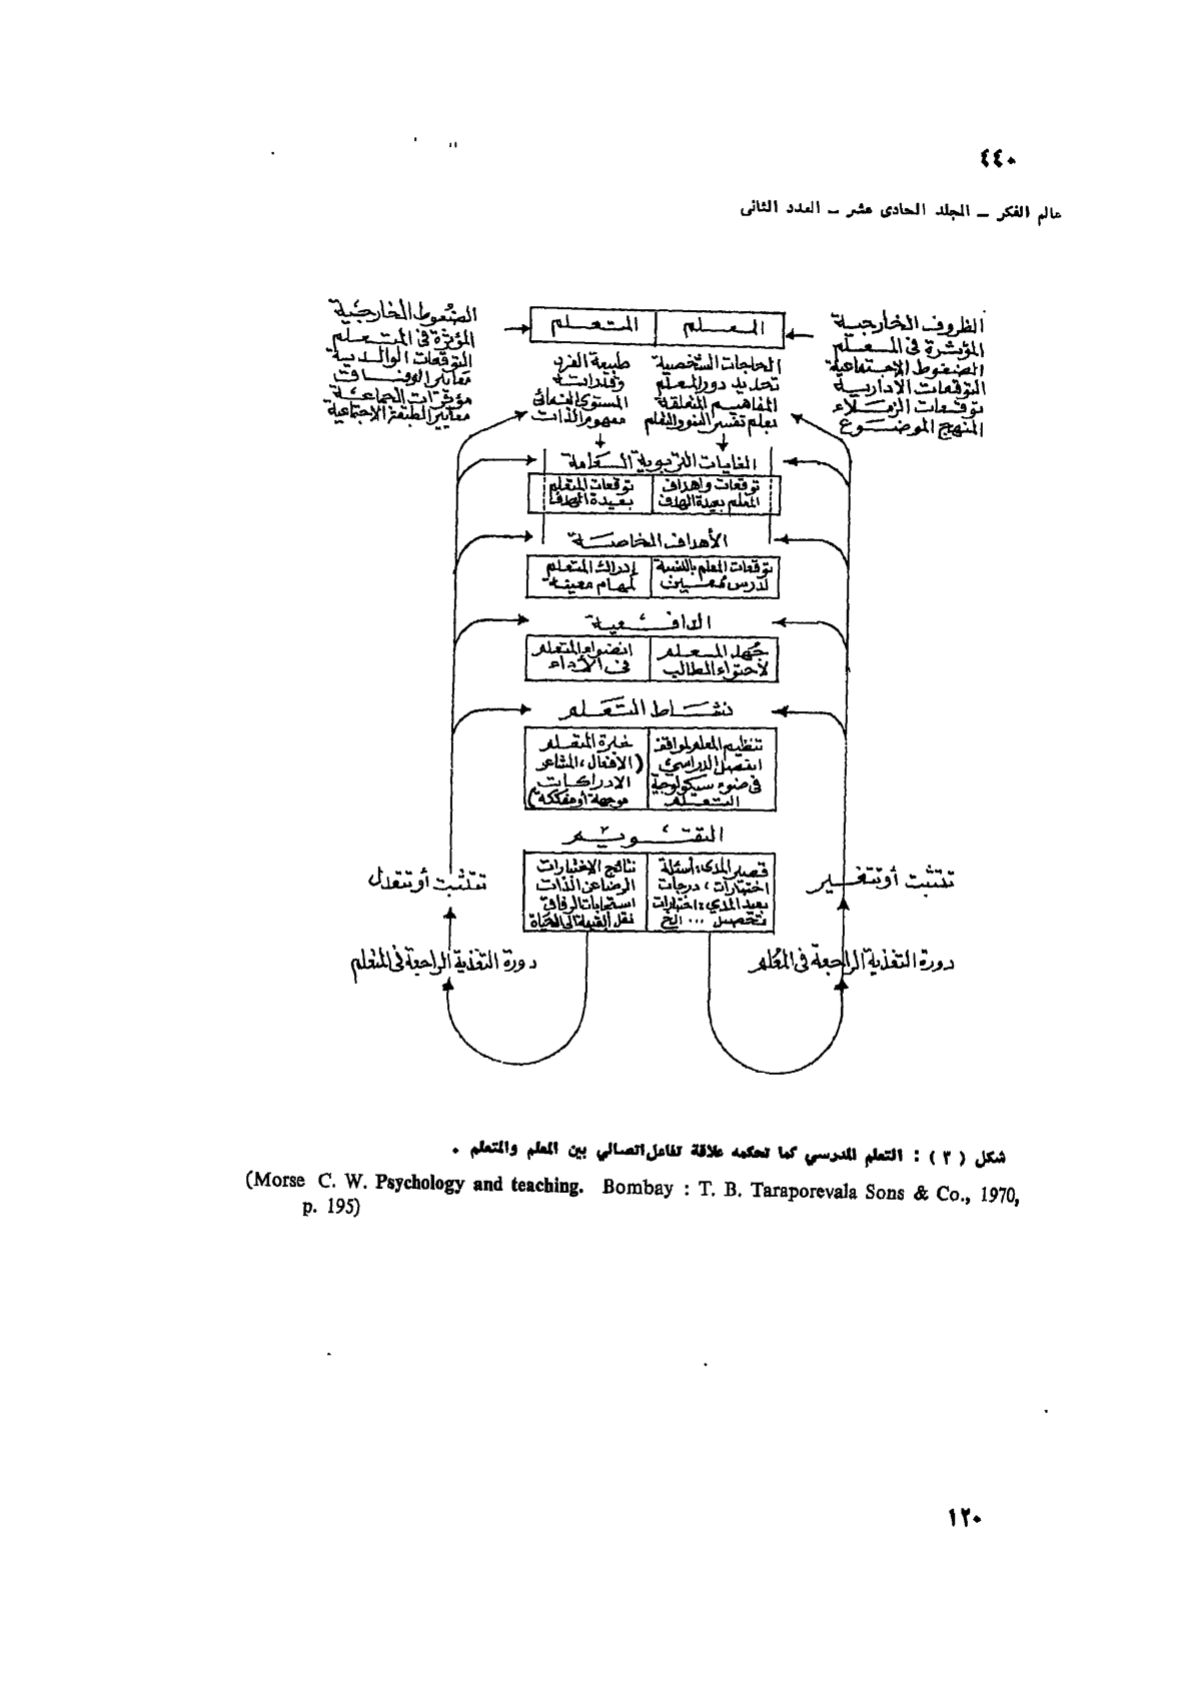 ٤٤٠
عالم الفكر ــ المجلد الحادى عشر ــ العدد الثانى
الظروف الخارجية
المؤثرة في المعلم
الضغوط الاجتماعية
التوقعات الادارية
توقعات الزملاء
المنهج الموضوع
المعلم
المتعلم
الضغوط الخارجية
المؤثرة في المتعلم
التوقعات الوالدية
معايير الرفاق
مؤثرات الجماعة
معايير الطبقة الاجتماعية
الحاجات الشخصية
تحديد دور المعلم
المفاهيم المتعلقة
بعلم تفسير النمو والتعلم
طبيعة الفرد
وقدراته
المستوى النمائى
مفهوم الذات
الغايات التربوية العامة
توقعات واهداف
المعلم بعيدة الهدف
توقعات المتعلم
بعيدة الهدف
الأهداف الخاصة
توقعات المعلم بالنسبة
لدرس معين
إدراك المتعلم
لمهام معينة
الدافعية
جهد المعلم
لاحتواء المطالب
انضواء المتعلم
فى الأداء
نشاط التعلم
تنظيم المعلم لمواقف
الفصل الدراسي
في ضوء سيكولوجية
التعلم
خبرة المتعلم
(الأفعال، المشاعر
الادراكات
موجهة أو مفككة)
التقويم
قصير المدى: أسئلة
اختبارات، درجات
بعيد المدى: اختبارات
تحصيل ... الخ
نتائج الاختبارات
الرضا عن الذات
استجابات الرفاق
نقل القيمة الى الحياة
تتثبت أو تتغير
تتثبت أو تتعدل
دورة التغذية الراجعة فى المعلم
دورة التغذية الراجعة فى المتعلم
شكل ( ٣ ) : التعلم المدرسي كما تحكمه علاقة تفاعل اتصالي بين المعلم والمتعلم .
(Morse C. W. Psychology and teaching. Bombay : T. B. Taraporevala Sons & Co., 1970,
p. 195)
١٢٠